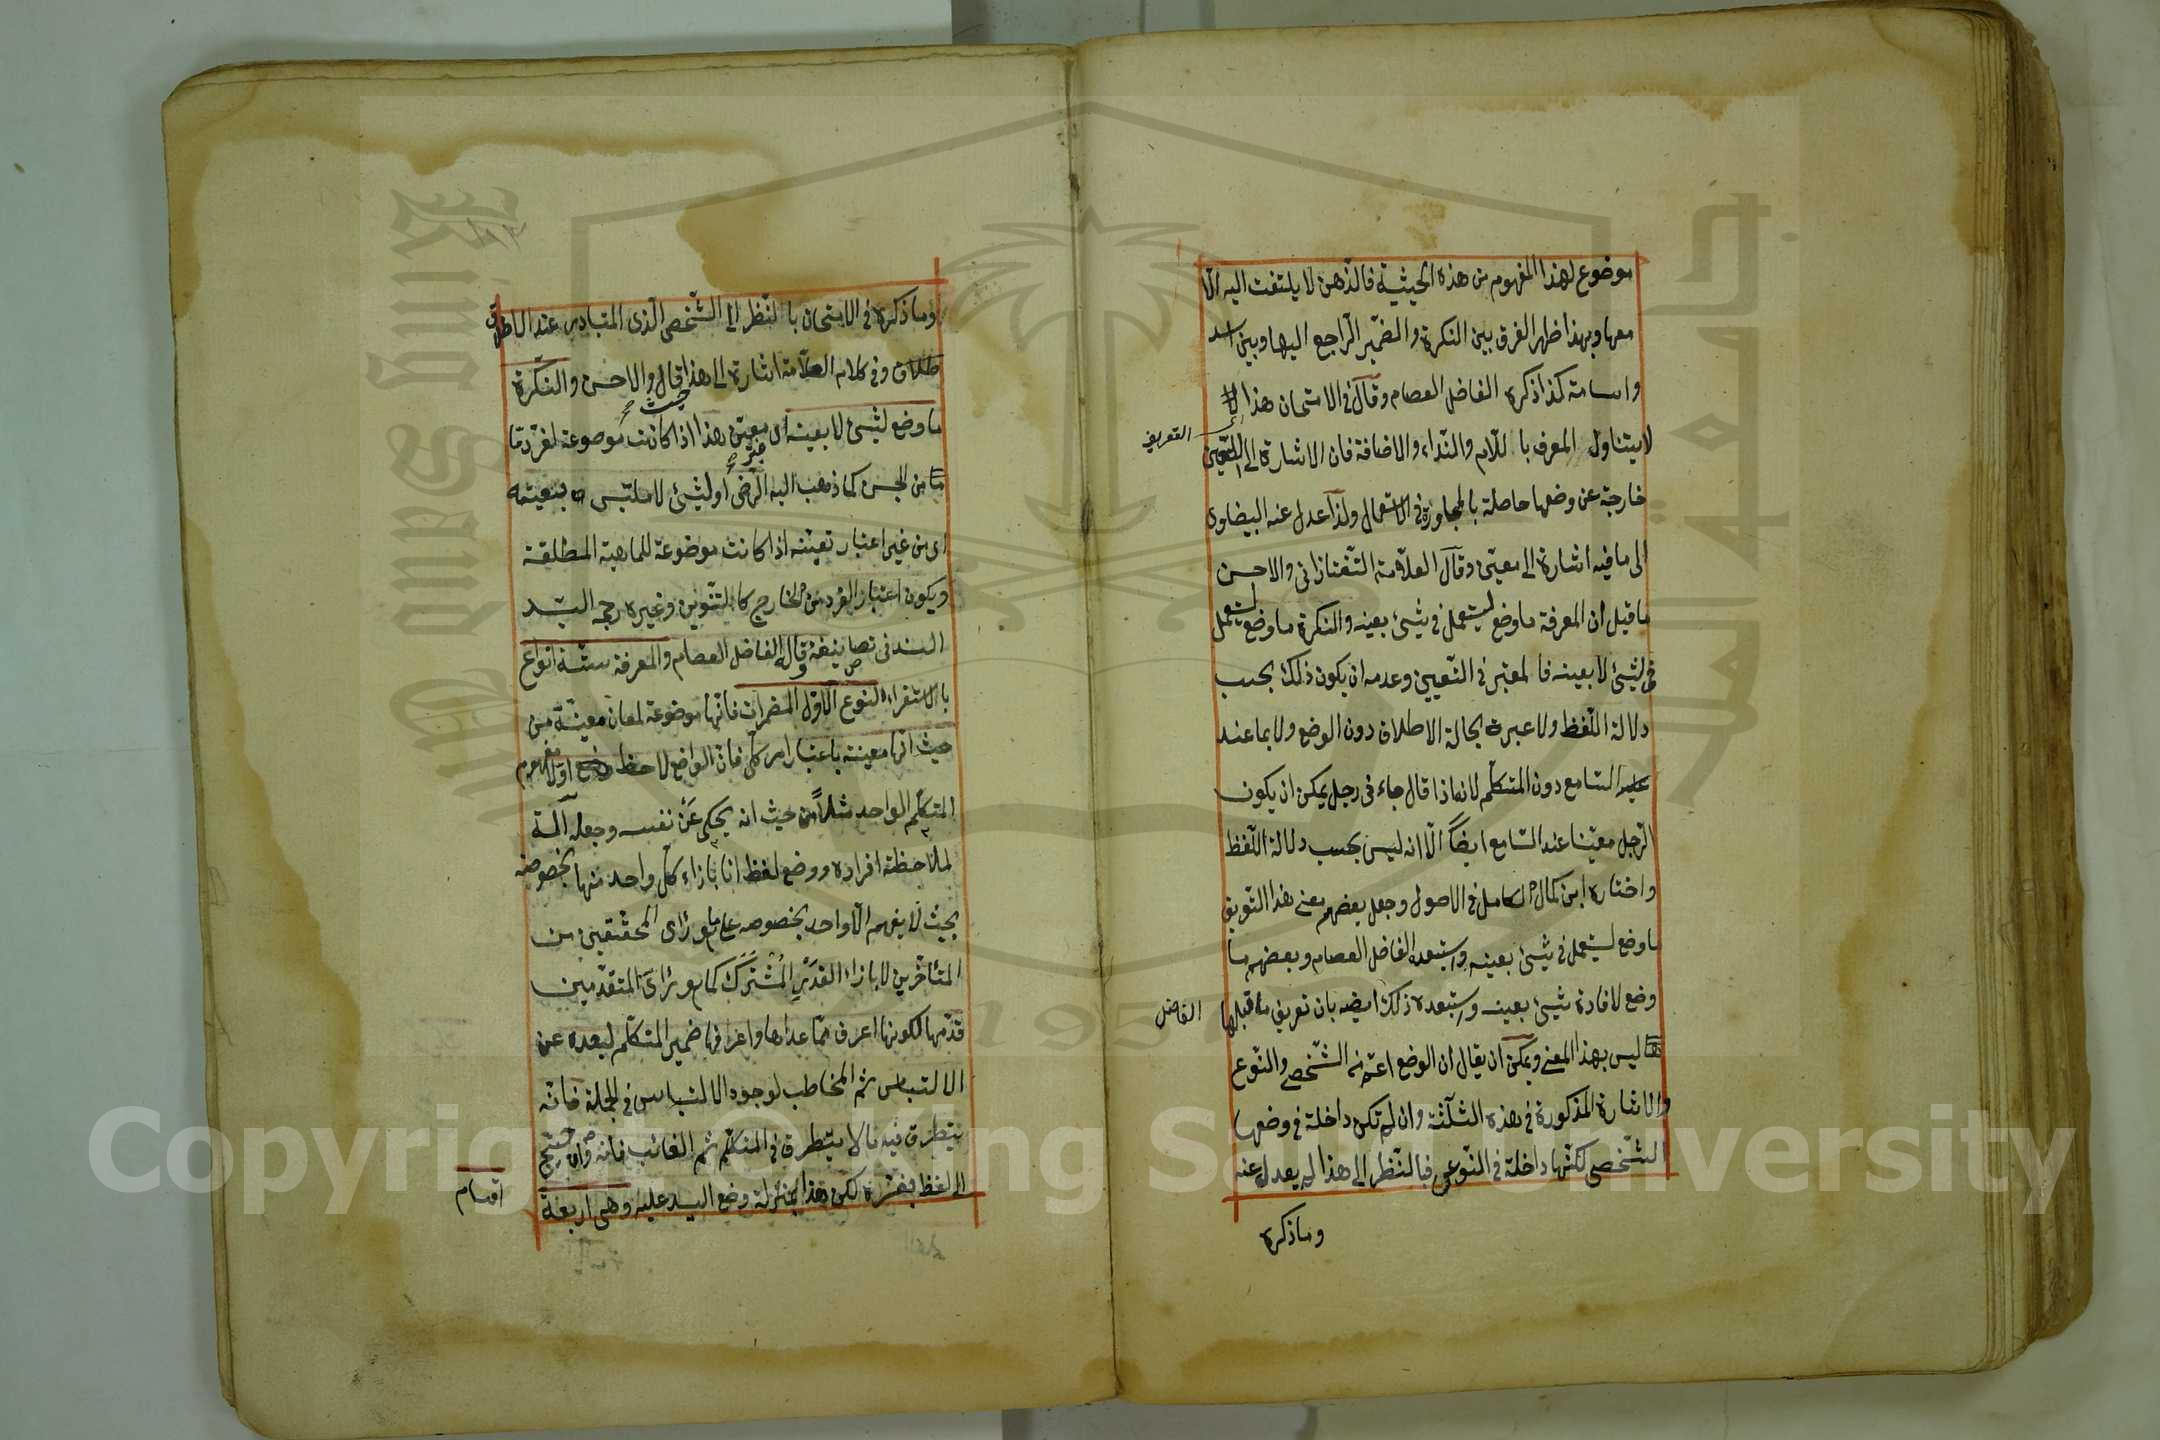 موضوع لهذا المفهوم من هذه الحيثية فالذهن لا يلتفت اليه الا
معها وبهذا ظهر الفرق بين النكرة والضمير الراجع اليها وبين اسد
واسامة كذا ذكره الفاضل العصام وقال في الامتحان هذا
لا يتناول المعرف باللام والنداء والاضافة فان الاشارة الى التعين
التعريف
خارجة عن وضعها حاصلة بالمجاورة في الاستعمال ولذا عدل عنه البيضاوى
الى ما فيه اشارة الى معين وقال العلامة التفتازانى والاحسن
ما قيل ان المعرفة ما وضع ليستعمل في شيئ بعينه والنكرة ما وضع ليستعمل
في شيئ لا بعينه فالمعتبر في التعيين وعدمه ان يكون ذلك بحسب
دلالة اللفظ ولا عبرة بحالة الاطلاق دون الوضع ولا بما عند
السامع دون المتكلم لانه اذا قال جاءنى رجل يمكن ان يكون
الرجل معينا عند السامع ايضاً الا انه ليس بحسب دلالة اللفظ
واختاره ابن كمال الكامل في الاصول وجعل بعضهم معنى هذا التعريف
ما وضع ليستعمل في شيئ بعينه واستبعده الفاضل العصام وبعضهم ما
وضع لافادة شيئ بعينه واستبعده ذلك ايضه بان تعريف ما قبلها
الفاضل
ليس بهذا المعنى ويمكن ان يقال ان الوضع اعم من الشخصى والنوع
والاشارة المذكورة في هذه الثلثة وان لم تكن داخلة في وضعها
الشخصى لكنها داخلة في النوعى فبالنظر الى هذا لم يعدل عنه
وما ذكره
وما ذكره في الامتحان بالنظر الى الشخصى الذى المتبادر عند الاطلاق
وفي كلام العلامة اشارة الى هذا قال والاحسن والنكرة
ما وضع لشيئ لا بعينه اى معين هذا اذا كانت موضوعة لفرد ما
حيث
غير
من الجنس كما ذهب اليه الرضى او لشيئ لا ملتبس بتعينه
اى من غير اعتبار تعينه اذا كانت موضوعة للماهية المطلقة
ويكون اعتبار الفرد من الخارج كالتنوين وغيره رجحه السيد
السند في تصانيفه وقال الفاضل العصام والمعرفة ستة انواع
بالاستقراء النوع الاول المضمرات فانها موضوعة لمعان معينة من
حيث انها معينة باعتبار امر كلى فان الواضع لاحظ اولا مفهوم
المتكلم الواحد مثلاً من حيث انه يحكى عن نفسه وجعله آلة
لملاحظة افراده ووضع لفظ انا بازاء كل واحد منها بخصوصه
بحيث لا يفهم الا واحد بخصوصه على ما هو راى المحققين من
المتأخرين لا بازاء القدر المشترك كما هو راى المتقدمين
قدمها لكونها اعرف مما عداها واعرافها ضمير المتكلم لبعده عن
الالتباس ثم المخاطب لوجود الالتباس في الجملة فانه
يتطرق فيه ما لا يتطرق في المتكلم ثم الغائب فانه
الى لفظ يفسره لكن هذا بمنزلة وضع اليد عليه وهى اربعة
اقسام
Copyright © King Saud University
جامعة الملك سعود
King Saud University
1957